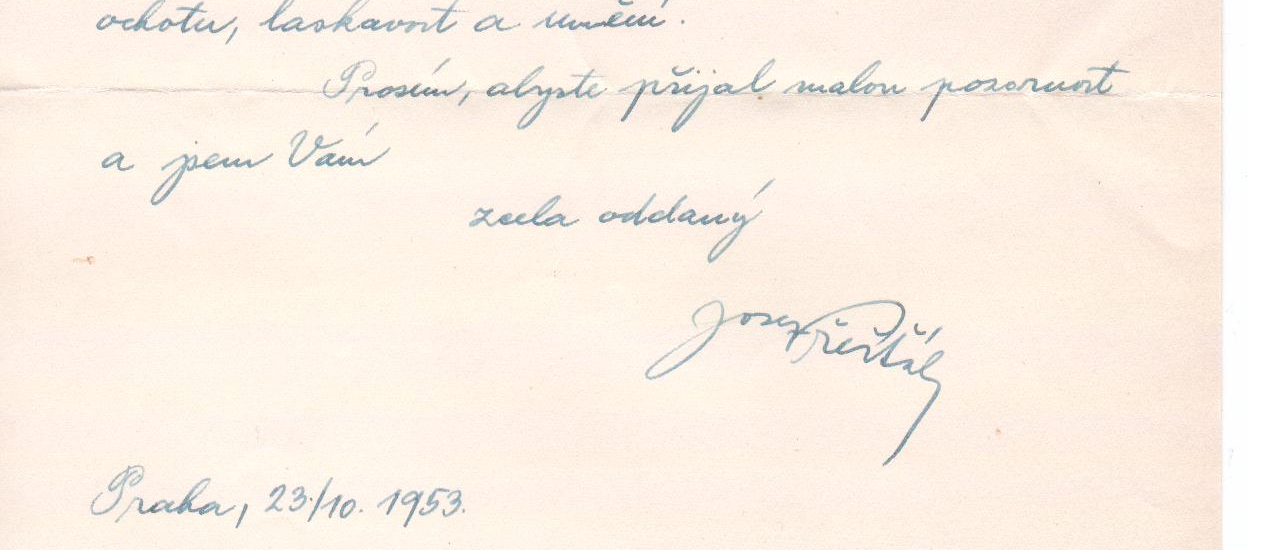 ochotu, laskavost a umění.
Prosím, abyste přijal malou pozornost
a jsem Vám
zcela oddaný
Josef
Praha, 23/10. 1953.